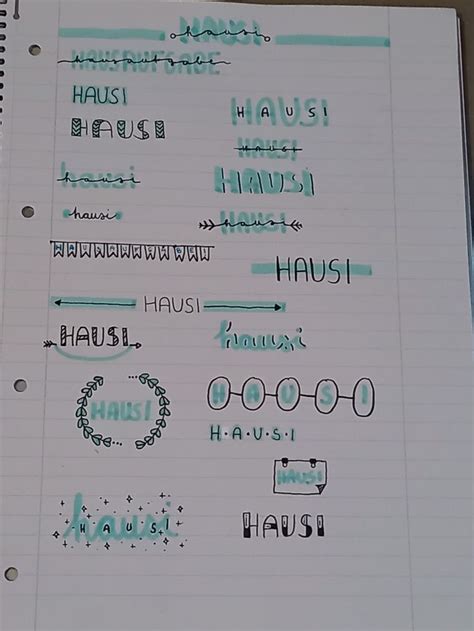 HAUSI
hausi
HAUSAUFGABE
hausaufgabe
HAUSI
HAUSI
HAUSI
HAUSI
HAUSI
hausi
hausi
hausi
HAUSI
hausi
HAUSI
hausi
HAUSI
HAUSI
HAUSI
hausi
HAUSI
H-A-U-S-I
H·A·U·S·I
HAUSI
hausi
HAUSI
HAUSI